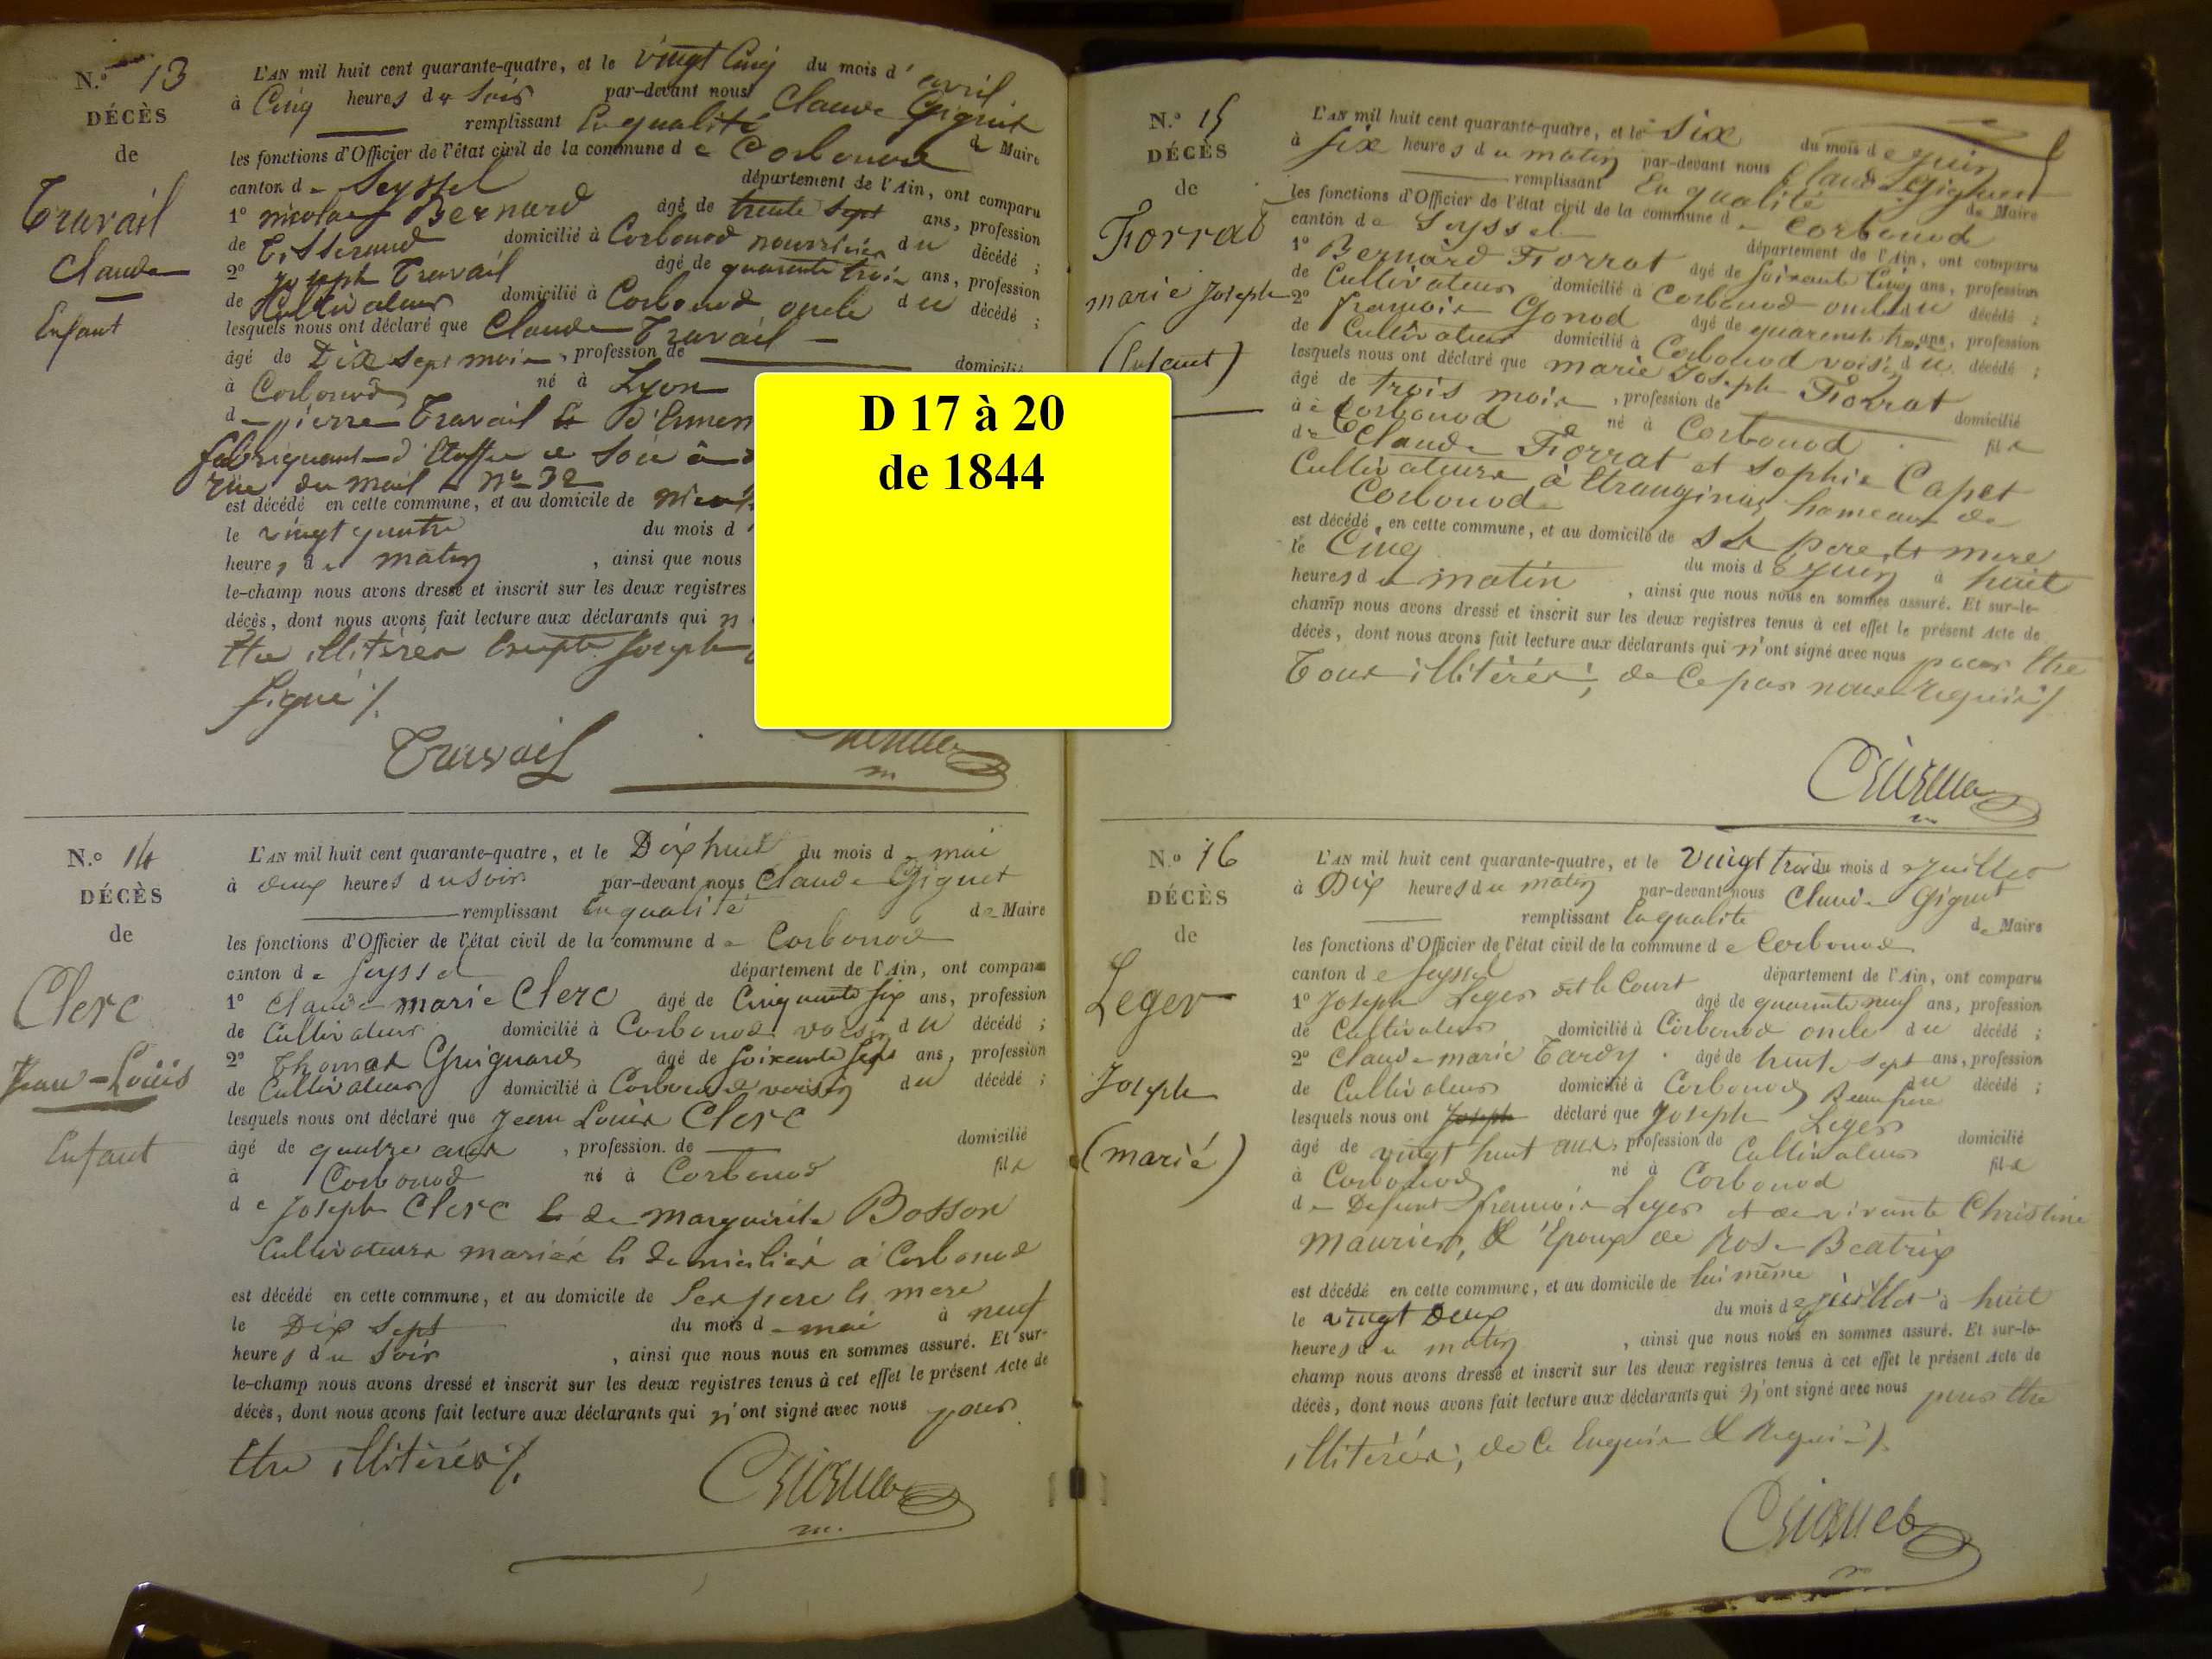 N.º 13
DÉCÈS
de
Travail
Claude
Enfant
L'AN mil huit cent quarante-quatre, et le vingt Cinq du mois d'avril
à Cinq heures du Soir par-devant nous Claude Giguet
remplissant En qualité de Maire
les fonctions d'Officier de l'état civil de la commune de Corbonod
canton de Seyssel département de l'Ain, ont comparu
1º nicolas Bernard âgé de trente Sept ans, profession
de Tisserand domicilié à Corbonod nourricier du décédé ;
2º Joseph Travail âgé de quarante trois ans, profession
de Cultivateur domicilié à Corbonod oncle du décédé ;
lesquels nous ont déclaré que Claude Travail
âgé de Dix Sept mois, profession de domicilié
à Corbonod né à Lyon
de pierre Travail et D'
fabriquant d'Etoffe de Soie à
rue du mail nº 32
est décédé en cette commune, et au domicile de
le vingt quatre du mois d
heures du matin, ainsi que nous
le-champ nous avons dressé et inscrit sur les deux registres
décès, dont nous avons fait lecture aux déclarants qui n
être illitérés Excepté Joseph
Signé ./.
Travail
D 17 à 20
de 1844
N.º 14
DÉCÈS
de
Clerc
Jean-Loüis
Enfant
L'AN mil huit cent quarante-quatre, et le Dix huit du mois de mai
à deux heures du Soir par-devant nous Claude Giguet
remplissant En qualité de Maire
les fonctions d'Officier de l'état civil de la commune de Corbonod
canton de Seyssel département de l'Ain, ont comparu
1º Claude marie Clerc âgé de Cinquante Six ans, profession
de Cultivateur domicilié à Corbonod voisin du décédé ;
2º Thomas Guignard âgé de Soixante Sept ans, profession
de Cultivateur domicilié à Corbonod voisin du décédé ;
lesquels nous ont déclaré que Jean Louis Clerc
âgé de quatre ans, profession de domicilié
à Corbonod né à Corbonod fils
de Joseph Clerc & de marguerite Bosson
Cultivateurs mariés & Domiciliés à Corbonod
est décédé en cette commune, et au domicile de Ses pere & mere
le Dix Sept du mois de mai à neuf
heures du Soir, ainsi que nous nous en sommes assuré. Et sur-
le-champ nous avons dressé et inscrit sur les deux registres tenus à cet effet le présent Acte de
décès, dont nous avons fait lecture aux déclarants qui n'ont signé avec nous pour
être illitérés ./.
Giguet
N.º 15
DÉCÈS
de
Fiorrat
marie Joseph
(Enfant)
L'AN mil huit cent quarante-quatre, et le Six du mois de juin
à Six heures du matin par-devant nous Claude Giguet
remplissant En qualité de Maire
les fonctions d'Officier de l'état civil de la commune de Corbonod
canton de Seyssel département de l'Ain, ont comparu
1º Bernard Fiorrat âgé de Soixante Cinq ans, profession
de Cultivateur domicilié à Corbonod oncle du décédé ;
2º francois Gonod âgé de quarente trois ans, profession
de Cultivateur domicilié à Corbonod voisin du décédé ;
lesquels nous ont déclaré que marie Joseph Fiorrat
âgé de trois mois, profession de domicilié
à Corbonod né à Corbonod fils
de Claude Fiorrat et Sophie Capet
Cultivateurs à Etranginas hameau de
Corbonod
est décédé en cette commune, et au domicile de Ses pere et mere
le Cinq du mois de juin à huit
heures du matin, ainsi que nous nous en sommes assuré. Et sur-le-
champ nous avons dressé et inscrit sur les deux registres tenus à cet effet le présent Acte de
décès, dont nous avons fait lecture aux déclarants qui n'ont signé avec nous pour être
Tous illitérés; de ce par nous requis ./.
Giguet
N.º 16
DÉCÈS
de
Leger
Joseph
(marié)
L'AN mil huit cent quarante-quatre, et le Vingt trois du mois de juillet
à Dix heures du matin par-devant nous Claude Giguet
remplissant En qualité de Maire
les fonctions d'Officier de l'état civil de la commune de Corbonod
canton de Seyssel département de l'Ain, ont comparu
1º Joseph Leger dit le Court âgé de quarante neuf ans, profession
de Cultivateur domicilié à Corbonod oncle du décédé ;
2º Claude marie Tardy âgé de trente Sept ans, profession
de Cultivateur domicilié à Corbonod Beau frere du décédé ;
lesquels nous ont Joseph déclaré que Joseph Leger
âgé de vingt huit ans, profession de Cultivateur domicilié
à Corbonod né à Corbonod fils
de Defunt francois Leger et de vivante Christine
Maurier, & Epoux de Rose Beatrix
est décédé en cette commune, et au domicile de lui même
le vingt Deux du mois de juillet à huit
heures du matin, ainsi que nous nous en sommes assuré. Et sur-le-
champ nous avons dressé et inscrit sur les deux registres tenus à cet effet le présent Acte de
décès, dont nous avons fait lecture aux déclarants qui n'ont signé avec nous pour être
illitérés; de ce Enquis & Requis ./.
Giguet